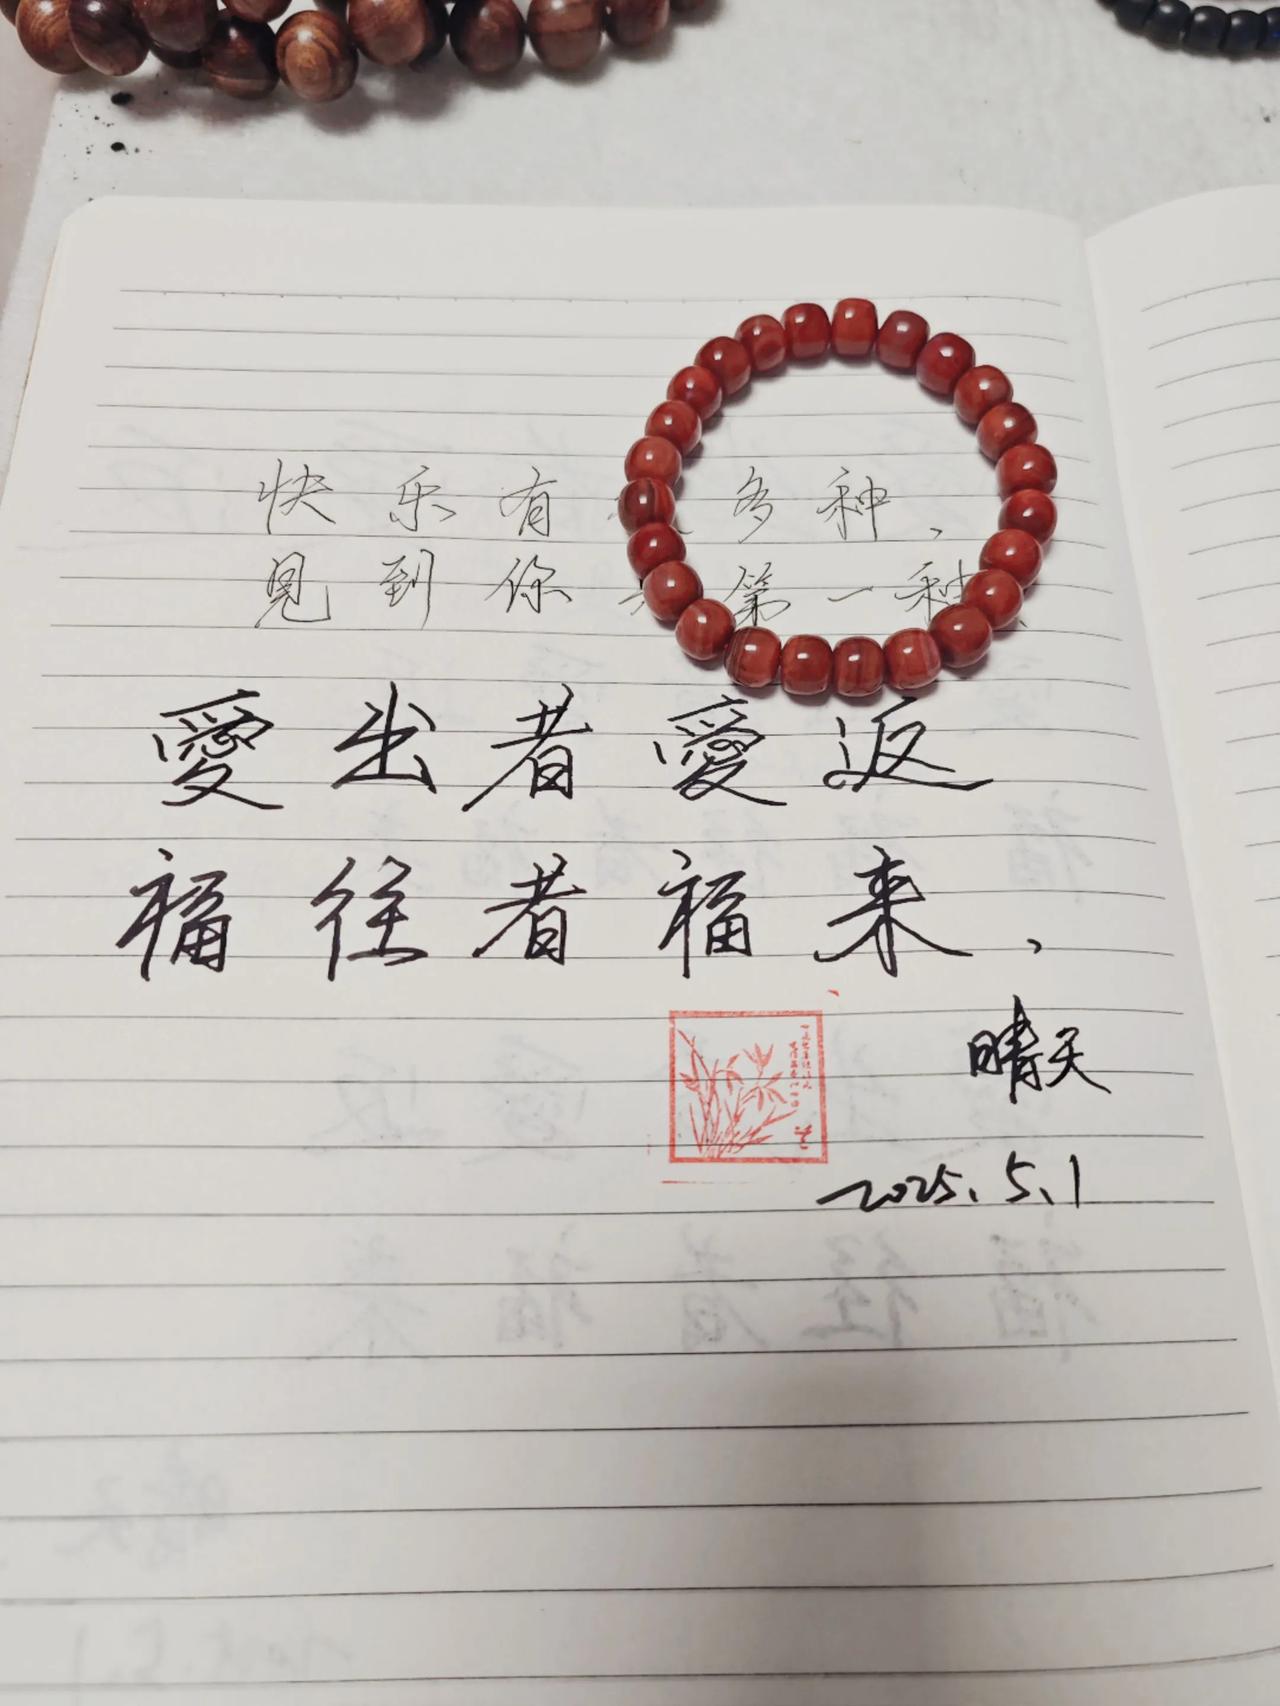 快乐有 多种、
见到你 第一种、
愛出者愛返
福往者福来、
晴天
2025.5.1